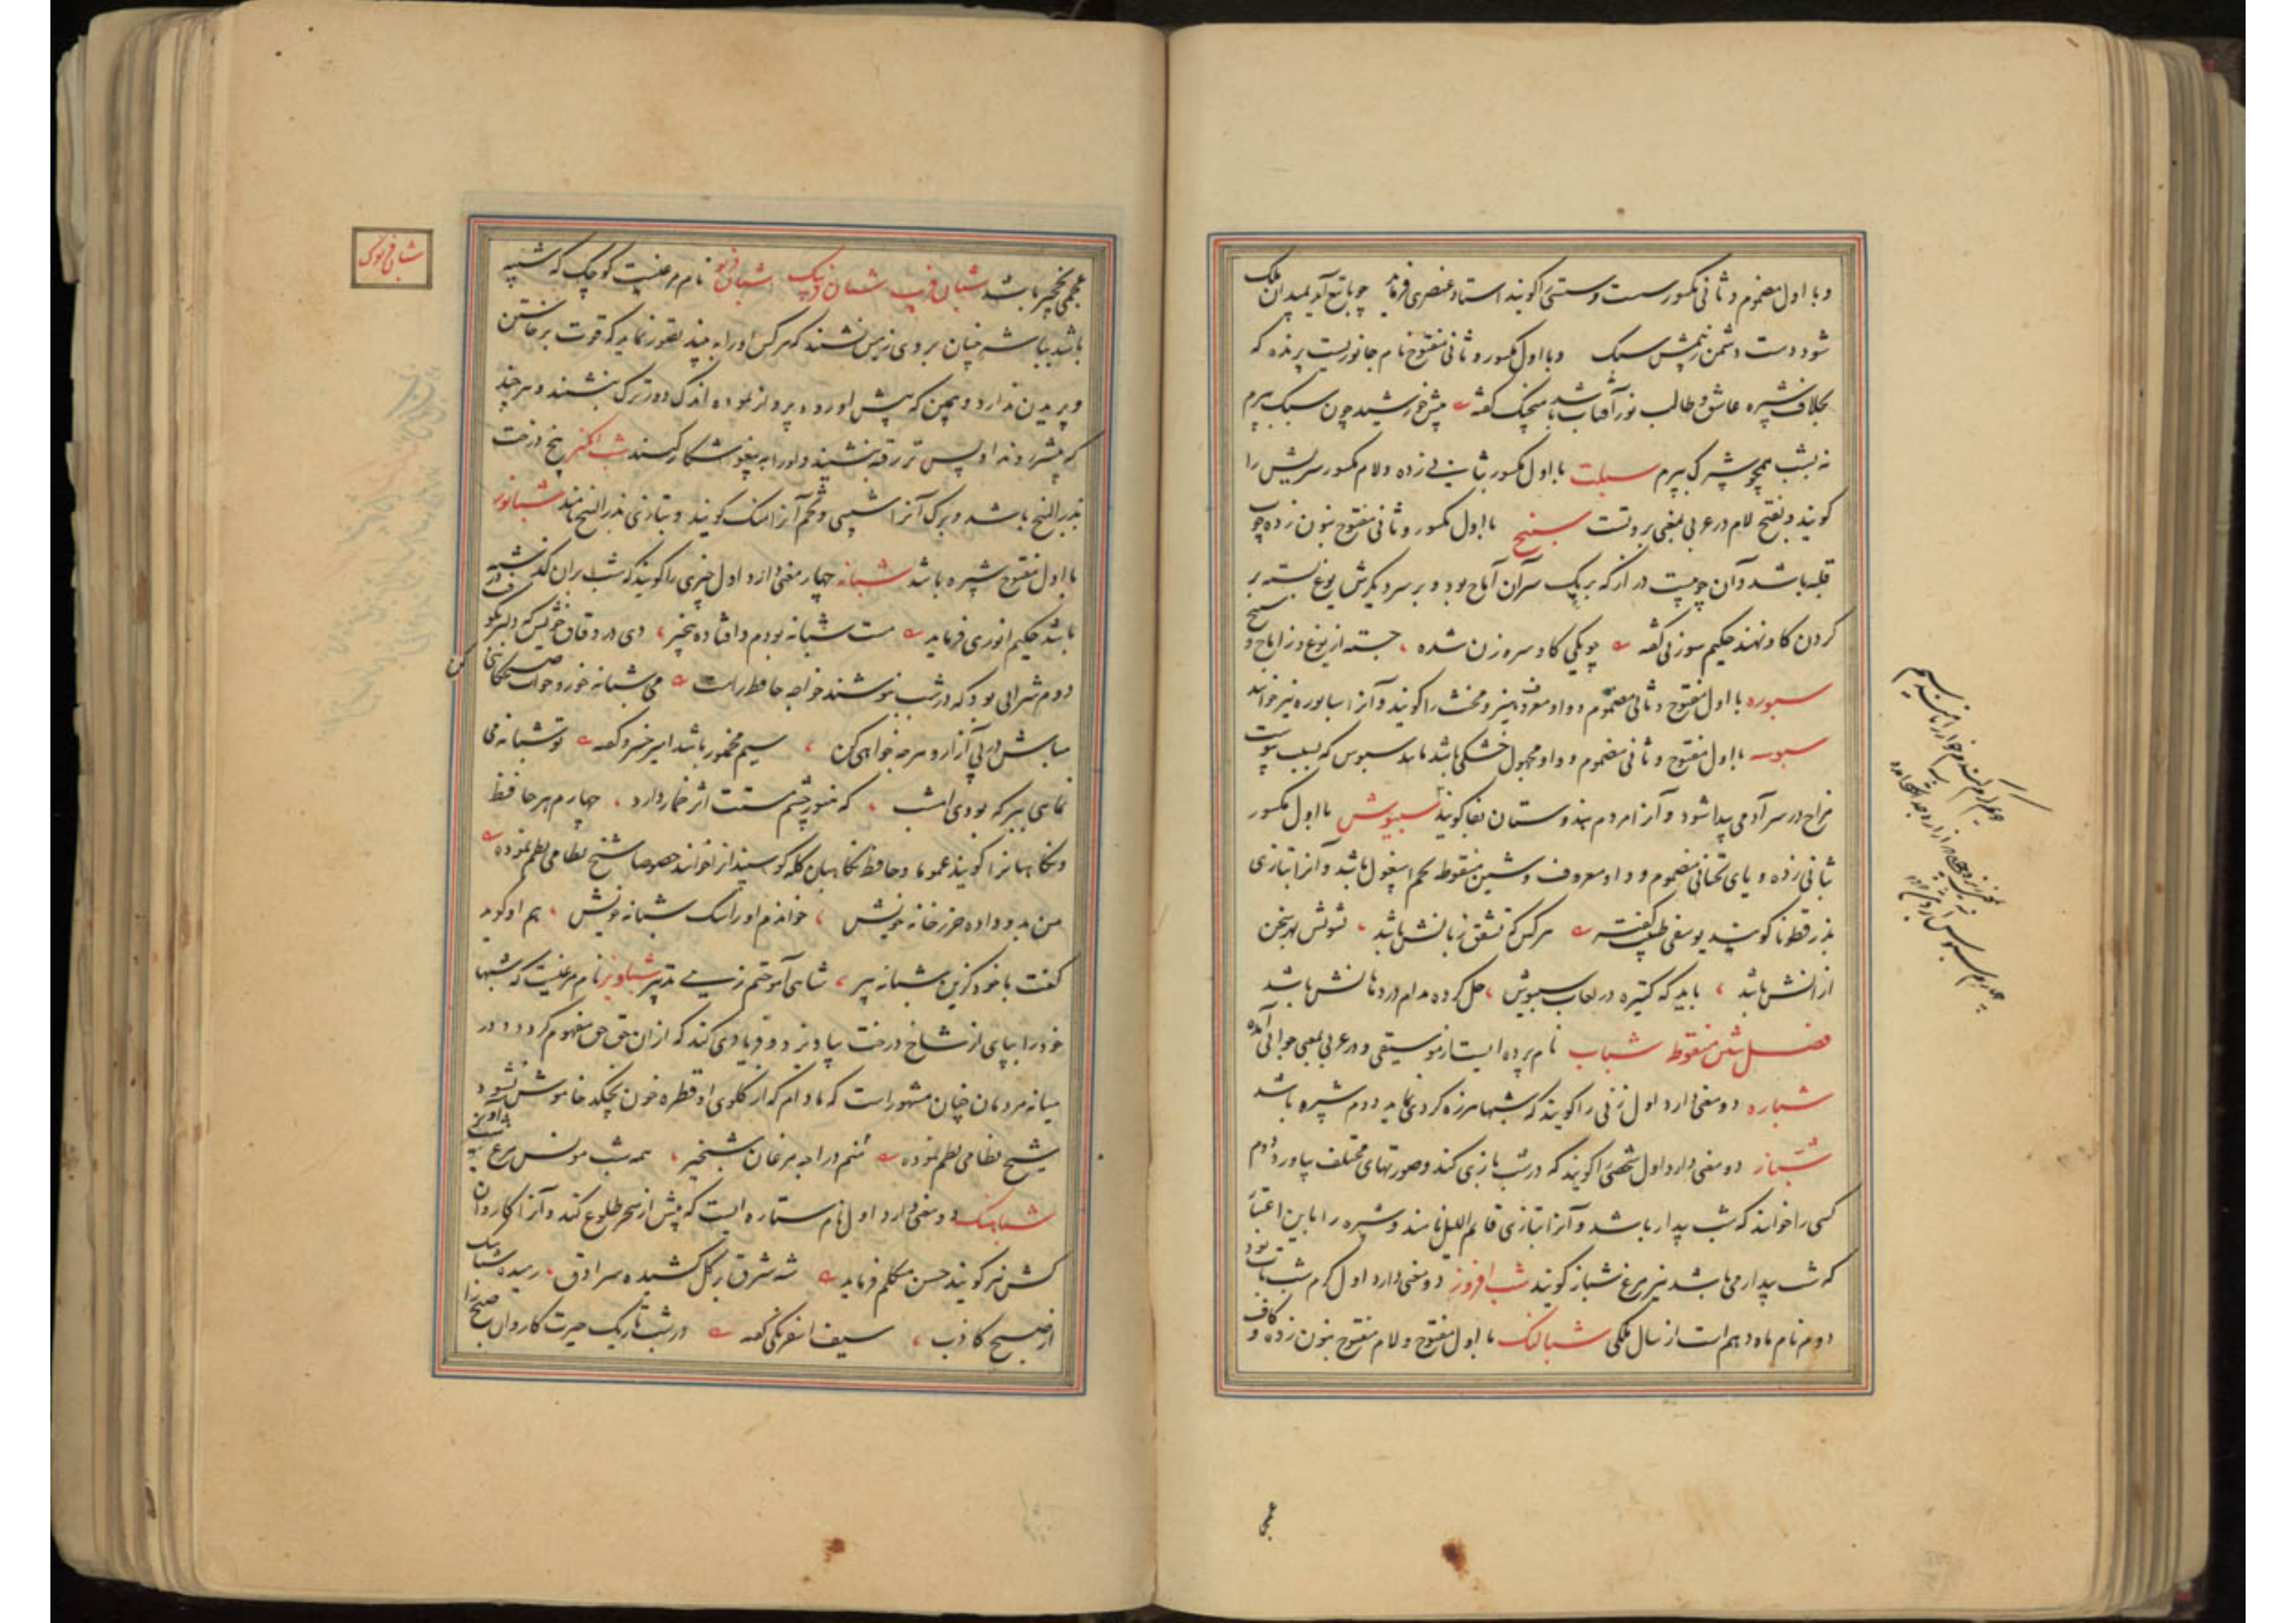 و با اول مضموم و ثانی مکسور سست و سستی را گویند استاد عنصری فرماید چو با تیغ آید بمیدان ملک
شود دست دشمن ز بیمش سبک و با اول مکسور و ثانی مفتوح نام جانوریست پرنده که
بخلاف شپره عاشق و طالب نور آفتاب باشد منجیک گفته پیش خورشید چون سبک بپرم
نه بشب همچو شپرک بپرم سبلت با اول مکسور بثانی زده و لام مکسور سریش را
گویند و بفتح لام در عربی بمعنی بروتست سبنج با اول مکسور و ثانی مفتوح بنون زده چوب
قلبه باشد و آن چوبیست دراز که بر یک سر آن آماج بود و بر سر دیگرش یوغ بسته بر
گردن گاو نهند حکیم سوزنی گفته چو یکی گاو سره زن شده جسته از یوغ وز آماج و سبنج
سبوره با اول مفتوح و ثانی مضموم و واو معروف هیز و مخنث را گویند و آنرا سابوره نیز خوانند
سبوسه با اول مفتوح و ثانی مضموم و واو مجهول خشکی باشد مانند سبوس که بسبب یبوست
مزاج در سر آدمی پیدا شود و آنرا مردم هندوستان بفا گویند سبیوش با اول مکسور
بثانی زده و یای تحتانی مضموم و واو معروف و شین منقوط تخم اسپغول باشد و آنرا بتازی
بذر قطونا گویند یوسفی طبیب گفته هر کس که تشقق زبانش باشد تشویش بهر سخن
ازانش باشد باید که کتیره در لعاب سبیوش حل کرده مدام در دهانش باشد
فصل شین منقوط شباب نام پرده ایست از موسیقی و در عربی بمعنی جوانی آمده
شباره دو معنی دارد اول زنی را گویند که شبها هرزه گردی نماید دوم شپره باشد
شباز دو معنی دارد اول شخصی را گویند که در شب بازی کند و صورتهای مختلف بیاورد دوم
کسی را خوانند که شب بیدار باشد و آنرا بتازی قایم اللیل نامند و شپره را باین اعتبار
که شب بیدار می باشد نیز مرغ شباز گویند شب افروز دو معنی دارد اول کرم شب تاب بود
دوم نام ماه دهم است از سال ملکی شبالنک با اول مفتوح و لام مفتوح بنون زده و کاف
عجمی
عجمی نخجیر باشد شبان فریب شبان فریبک شبان فریو نام مرغیست کوچک که شبیه
باشد بباشه چنان بر روی زمین نشیند که هر کس او را به بیند تصور نماید که قوت برخاستن
و پریدن ندارد و همین که پیش او روند پرواز نموده اندک دورترک بنشیند و هر چند
که پیشتر روند او پس تر رفته بنشیند و او را به پیغو شکار کنند شب انکیز بیخ درخت
بذر البنج باشد و برگ آنرا و تخم آنرا منک گویند و بتازی بذر البنج نامند شبانور
با اول مفتوح شپره باشد شبانه چهار معنی دارد اول چیزی را گویند که شب بران گذشته
باشد حکیم انوری فرماید مست شبانه بودم و افتاده بیخبر دی در وثاق خویش که دلبر بکوفت در
دوم شرابی بود که در شب بنوشند خواجه حافظ راست می شبانه خور و خواب صبحگاهی کن
مباش در پی آزار و هر چه خواهی کن سیم مخمور باشد امیر خسرو گفته تو شبانه می
نمائی ببر که بودی امشب که هنوز چشم مستت اثر خمار دارد چهارم هر حافظ
و نگاهبانرا گویند عموما و حافظ نگاهبان گله گوسپندانرا خوانند خصوصا شیخ نظامی نظم نموده
من بدو داده حرز خانه خویش خواندم او را سگ شبانه خویش هم او گوید
گفت با خود کزین شبانه پیر شاهی آموختم زهی تدبیر شباویز نام مرغیست که شبها
خود را بپای از شاخ درخت بیاویزد و فریادی کند که ازان حق حق مفهوم گردد و در
میانه مردمان چنان مشهور است که مادام که از گلوی او قطره خون نچکد خاموش نشود
شیخ نظامی نظم نموده منم در اجر مرغان شبخیز همه شب مونس مرغ شب آویز
شباهنک دو معنی دارد اول نام ستاره ایست که پیش از سحر طلوع کند و آنرا کاروان
کش نیز گویند حسن متکلم فرماید شه شرق بر گل کشیده سرادق رمیده شباهنک
از صبح کاذب سیف اسفرنگی گفته در شب تاریک حیرت کاروان صبح را